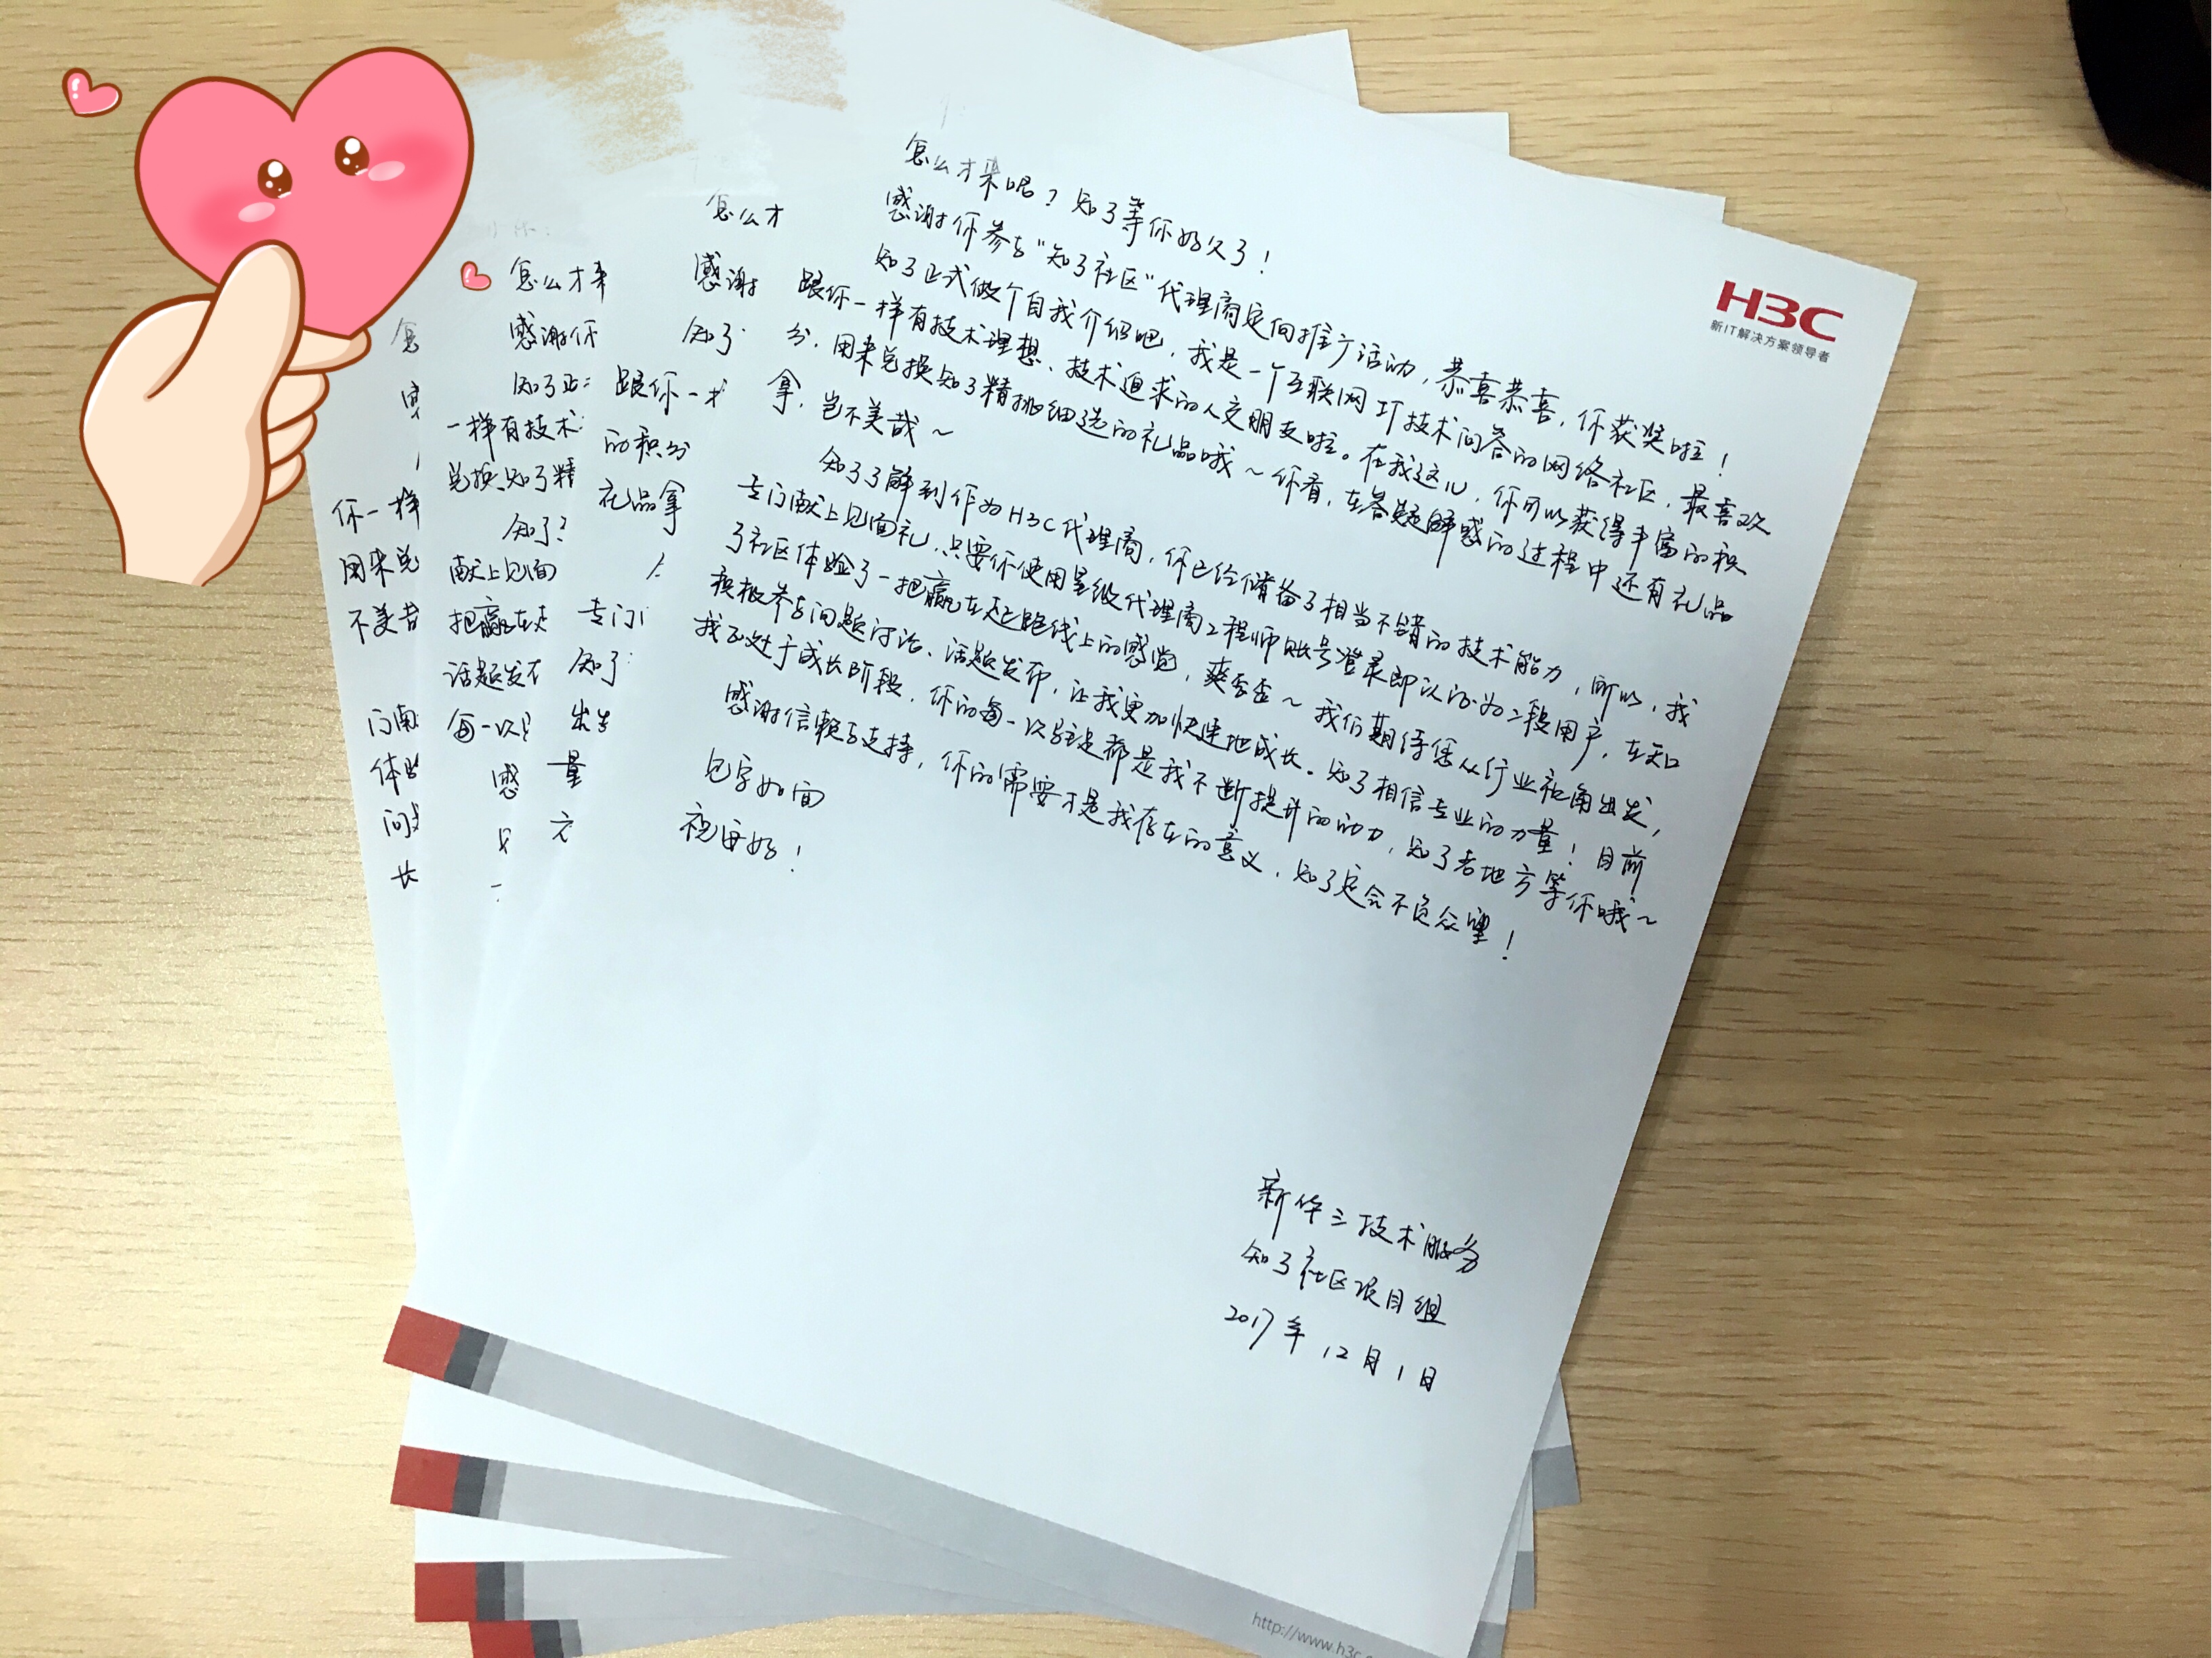 H3C
新IT解决方案领导者
怎么才来呢？知了等你好久了！
感谢你参与“知了社区”代理商定向推广活动，恭喜恭喜，你获奖啦！
知了正式做个自我介绍吧，我是一个互联网IT技术问答的网络社区，最喜欢
跟你一样有技术理想、技术追求的人交朋友啦。在我这儿，你可以获得丰富的积
分，用来兑换知了精挑细选的礼品哦～你看，在答疑解惑的过程中还有礼品
拿，岂不美哉～
知了了解到作为H3C代理商，你已经储备了相当不错的技术能力，所以，我
专门献上见面礼，只要你使用星级代理商工程师账号登录即认证为二段用户，在知
了社区体验了一把赢在起跑线上的感觉，爽歪歪～我们期待您从行业视角出发，
积极参与问题讨论、话题发布，让我更加快速地成长。知了相信专业的力量！目前
我正处于成长阶段，你的每一次驻足都是我不断提升的动力，知了老地方等你哦～
感谢信赖与支持，你的需要才是我存在的意义，知了定会不负众望！
见字如面
祝安好！
新华三技术服务
知了社区项目组
2017年12月1日
怎么才
感谢
知了
跟你一
的积分
礼品拿
专门
知了
出发
量
怎么才来
感谢你
知了正
一样有技术
兑换知了精
知了
献上见面
把赢在起
话题发布
每一次
感
你一样
用来兑
不美哉
门献
体验
长
http://www.h3c.